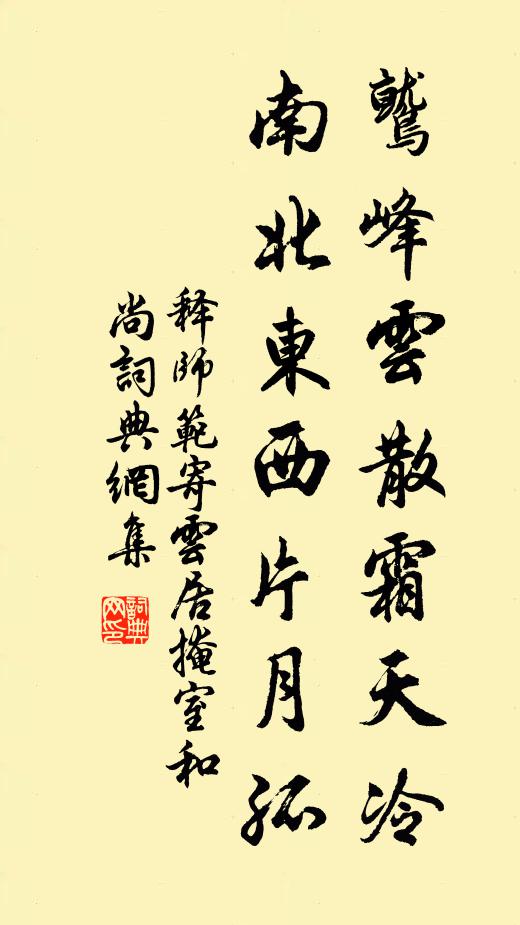 鷲峰雲散霜天冷
南北東西片月孤
释師範寄雲居掩室和
尚詞典網集
詞典
网印